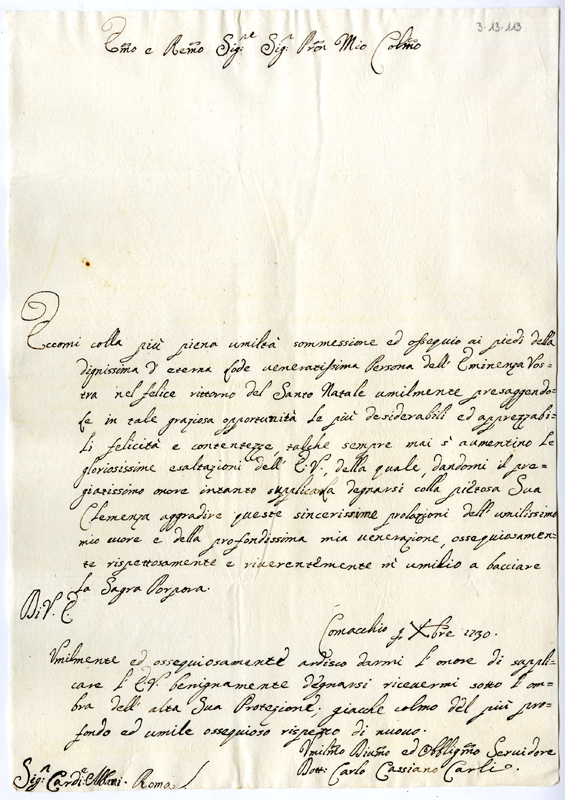 3-13-113
Emo e Remo Sig:re Sig: Pron Mio Colmo
Eccomi colla più piena umiltà sommessione ed ossequio ai piedi della
dignissima d'eterna lode veneratissima Persona dell'Eminenza Vos=
tra nel felice rittorno del Santo Natale umilmente presaggendo=
le in tale graziosa opportunità le più desiderabili ed apprezzabi=
li felicità e contentezze, talche sempre mai s'aumentino le
gloriosissime esaltazioni dell'E.V., della quale, dandomi il pre=
giatissimo onore intanto supplicarla degnarsi colla pietosa Sua
Clemenza aggradire queste sincerissime prolazioni dell'umilissimo
mio cuore e della profondissima mia venerazione, ossequiosamen=
te rispettosamente e riverentemente m'umilio a bacciare
la Sagra Porpora.
Di V. E.
Comacchio Xbre 1730.
Umilmente ed ossequiosamente ardisco darmi l'onore di suppli=
care l'E.V. benignamente degnarsi ricevermi sotto l'om=
bra dell'alta Sua Protezione, giache colmo del più pro=
fondo ed umile ossequioso rispetto di nuovo.
Umilmo Divmo ed Obbligmo Servidore
Dott: Carlo Cassiano Carli
Sig:r Card:e Albani. Roma